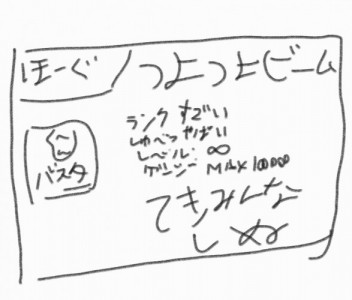 ほーぐ/つよつよビーム
ランク すごい
しゅべつ やばい
レベル:∞
ゲージ: MAX 10000
バスタ
てきみんな
しぬ